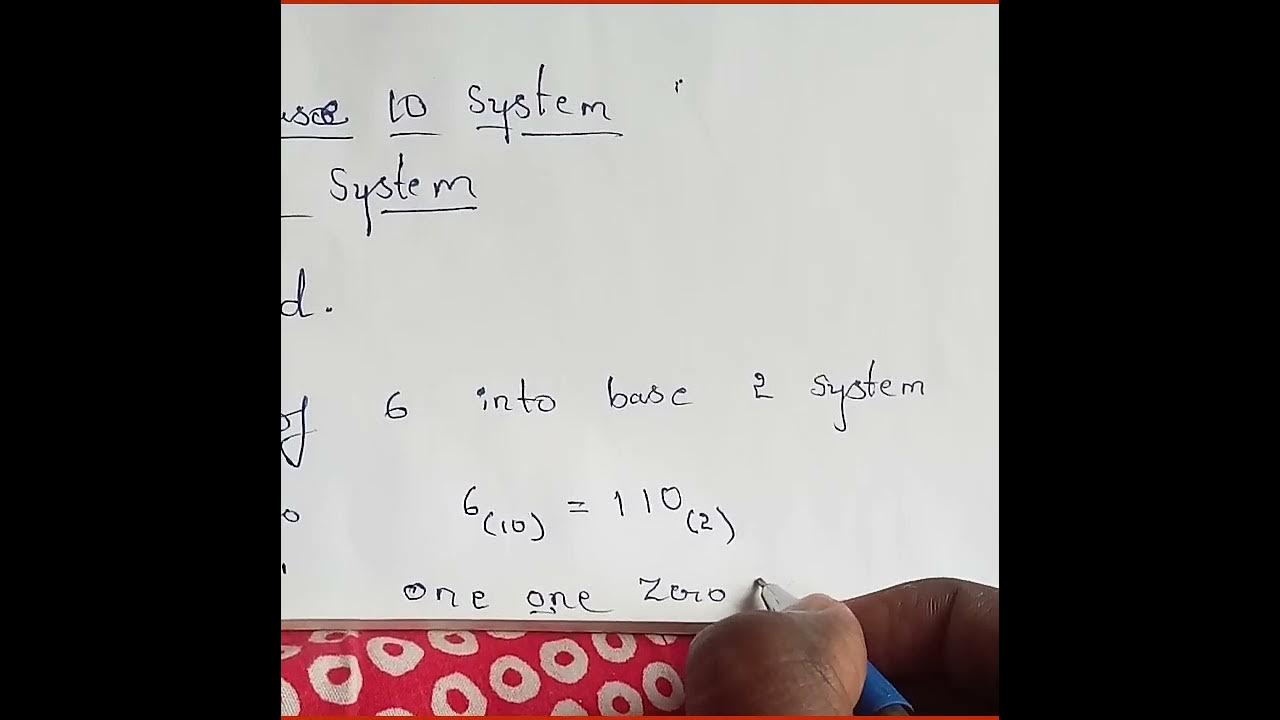 10 system
system
d.
of 6 into base 2 system
6(10) = 110(2)
one one zero